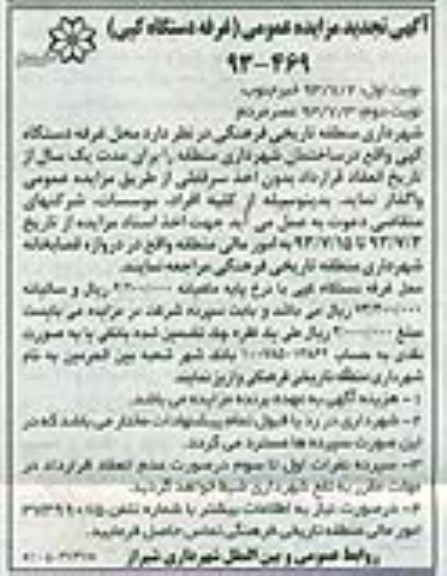 آگهی تجدید مزایده عمومی (غرفه دستگاه کپی)
۹۳-۴۶۹
نوبت اول: ۹۳/۷/۲ خبر جنوب
نوبت دوم: ۹۳/۷/۳ عصر مردم
شهرداری منطقه تاریخی فرهنگی در نظر دارد محل غرفه دستگاه
کپی واقع در ساختمان شهرداری منطقه را برای مدت یک سال از
تاریخ انعقاد قرارداد بدون اخذ سرقفلی از طریق مزایده عمومی
واگذار نماید. بدینوسیله از کلیه افراد، موسسات، شرکتهای
متقاضی دعوت به عمل می آید جهت اخذ اسناد مزایده از تاریخ
۹۳/۷/۳ تا ۹۳/۷/۱۵ به امور مالی منطقه واقع در دروازه قصابخانه
شهرداری منطقه تاریخی فرهنگی مراجعه نمایند.
محل غرفه دستگاه کپی با نرخ پایه ماهیانه ریال و سالیانه
ریال می باشد و بابت سپرده شرکت در مزایده می بایست
مبلغ ریال طی یک فقره چک تضمین شده بانکی یا به صورت
نقدی به حساب بانک شهر شعبه بین الحرمین به نام
شهرداری منطقه تاریخی فرهنگی واریز نمایند.
۱- هزینه آگهی به عهده برنده مزایده می باشد.
۲- شهرداری در رد یا قبول تمام پیشنهادات مختار می باشد که در
این صورت سپرده ها مسترد می گردد.
۳- سپرده نفرات اول تا سوم در صورت عدم انعقاد قرارداد در
مهلت مقرر به نفع شهرداری ضبط خواهد گردید.
۴- در صورت نیاز به اطلاعات بیشتر با شماره تلفن
امور مالی منطقه تاریخی فرهنگی تماس حاصل فرمایید.
روابط عمومی و بین الملل شهرداری شیراز